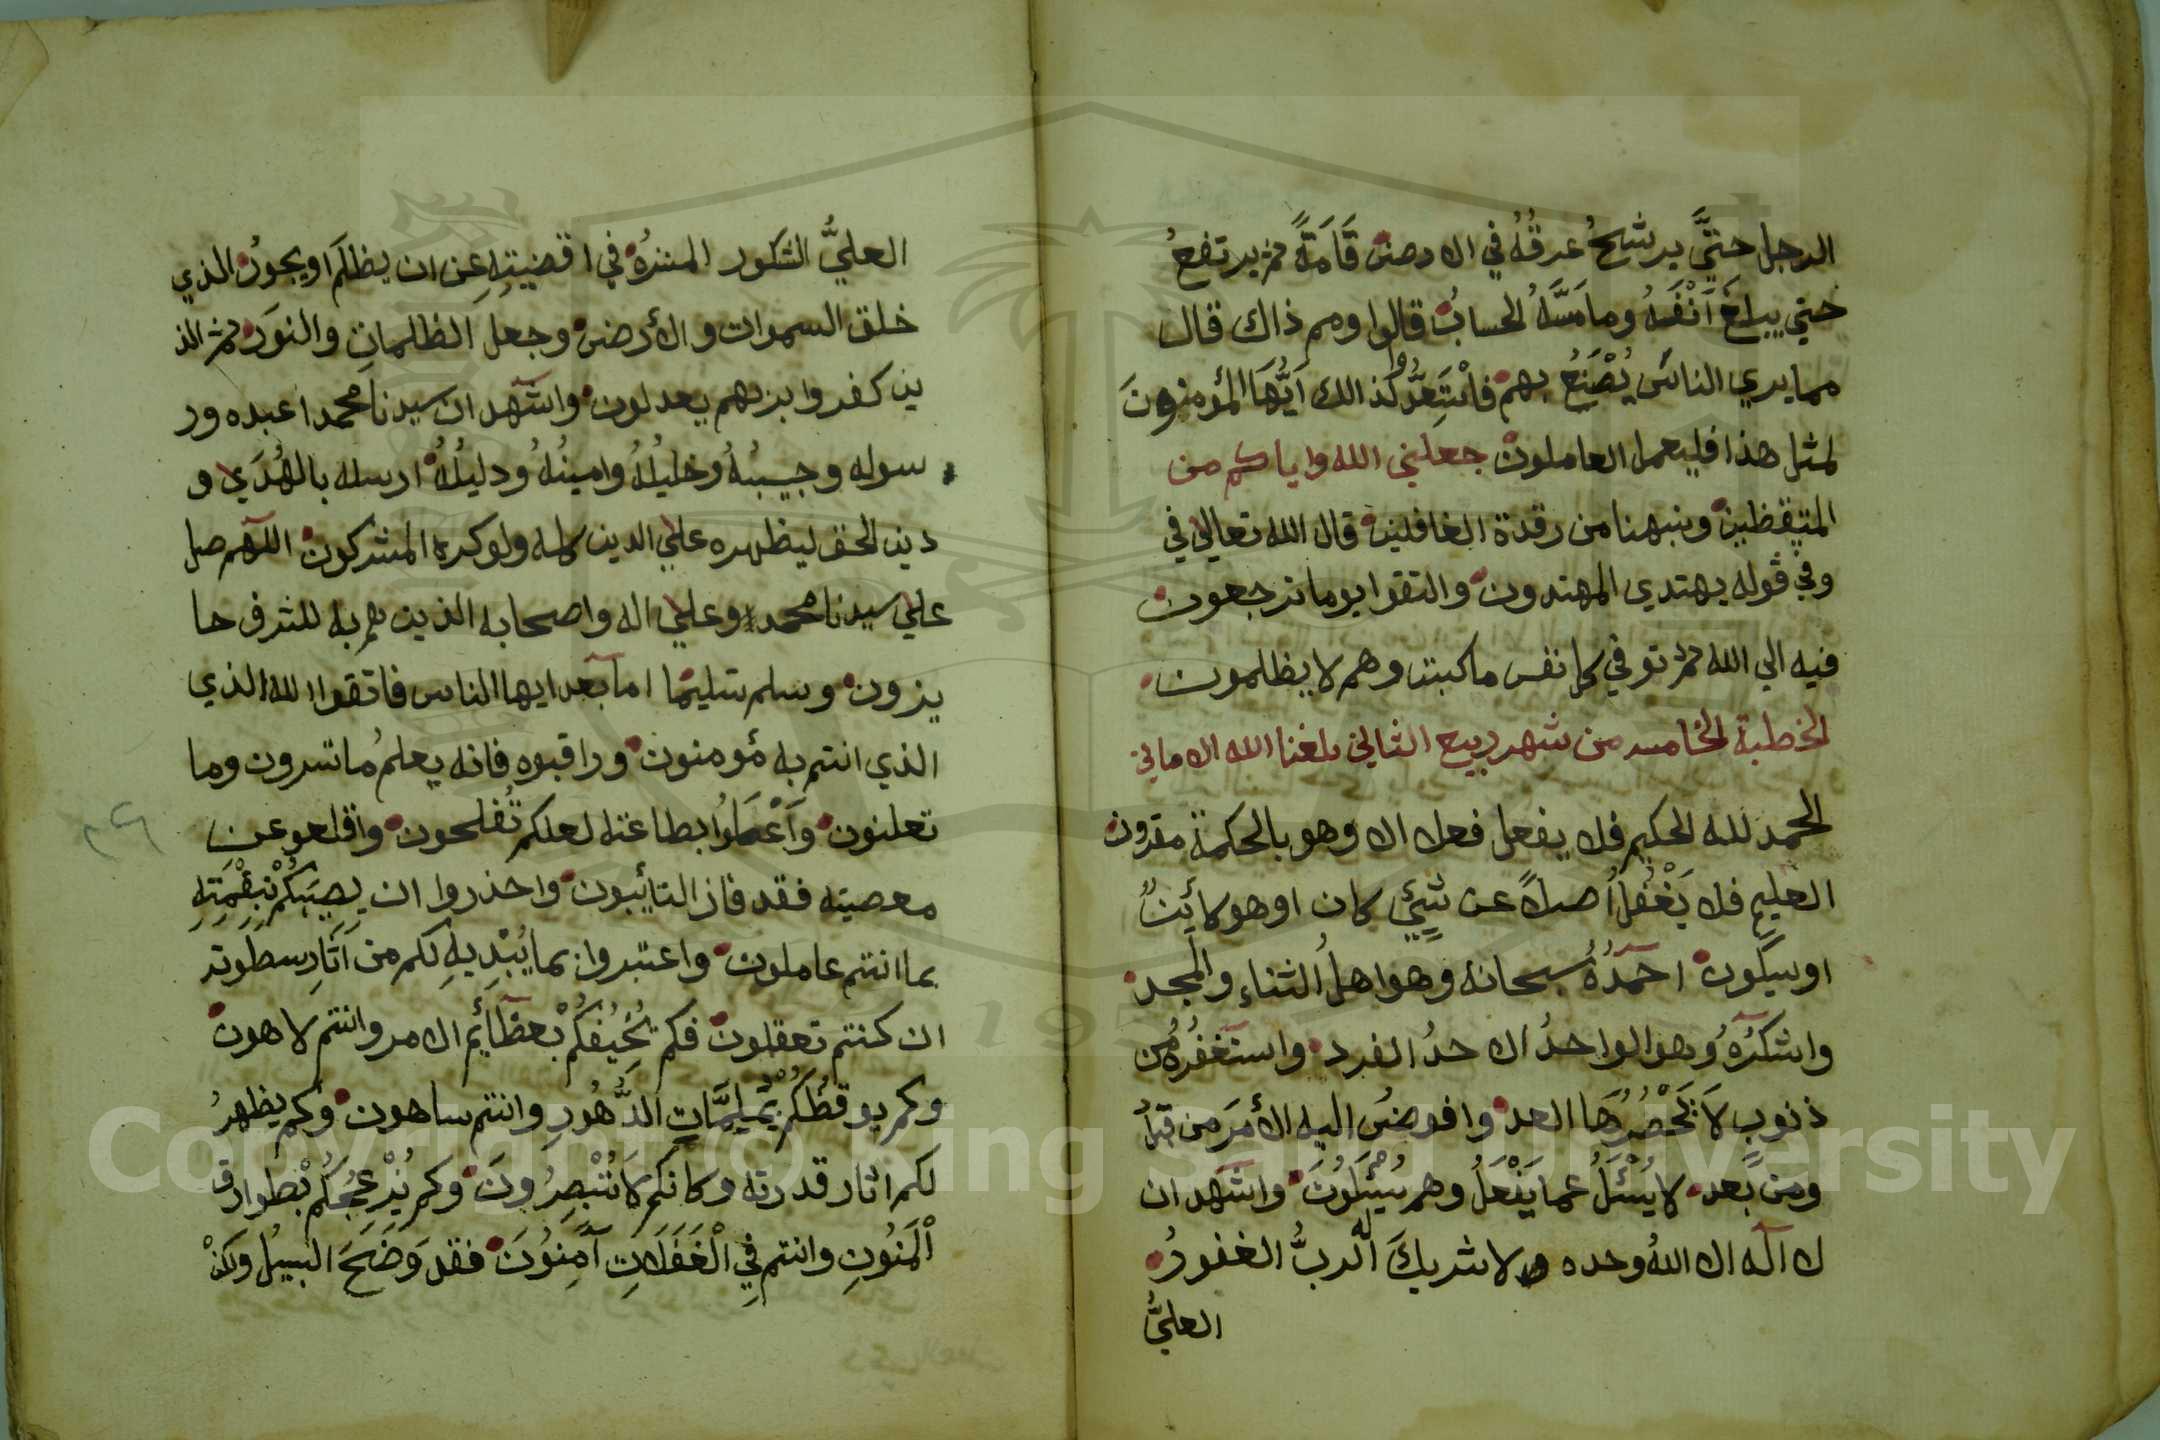 الرجل حتيَّ يرشحُ عرقُهُ في الارض قَامَةً ثم يرتفعُ
حتي يبلغَ اَنْفَهُ وما مَسَّهُ الحسابُ قالوا ومم ذاك قال
مما يري الناسَ يُصْنَعُ بهم فاسْتَعِدُّوْا كذالك اَيُّهَا المؤمنونَ
لمثل هذا فليعمل العاملون جعلني الله واياكم من
المتيقظين ونبهنا من رقدة الغافلين قال الله تعالي في
وفي قوله يهتدي المهتدون والتقوا يوما ترجعون
فيه الي الله ثم توفي كل نفس ما كسبت وهم لا يظلمون
الخطبة الخامسه من شهر ربيع الثاني بلغنا الله الاماني
الحمد لله الحكيم فلا يفعل فعلا الا وهو بالحكمة مقرون
العليم فلا يَغْفُلُ اصلاً عن شيئٍ كان او هو كائنٌ
او سيكون احمدُهُ سبحانه وهو اهلُ الثناءِ والمجد
واشكرُهُ وهو الواحدُ الاحدُ الفرد واستغفرُهُ من
ذنوبٍ لاَ يَحْصُرُهَا العد وافوضُ اليه الأمرَ من قبلُ
ومن بَعد لا يُسْئَلُ عما يَفْعَلُ وهم يُسْئَلُونَ واشهد ان
لا اله الا اللهُ وحده ولا شريكَ له الربُّ الغفورُ
العليُّ
العليُّ الشكور المنزهُ في اقضيتِهِ عن ان يظلمَ او يجورُ الذي
خلق السموات والأرض وجعل الظلماتِ والنورَ ثم الذ
ين كفروا بربهم يعدلون واشهد ان سيدنا محمدا عبده ور
سوله وحبيبُهُ وخليلُهُ وامينُهُ ودليلُهُ ارسله بالهُدَي و
دين الحق ليظهره علي الدين كله ولو كره المشركون اللهم صل
علي سيدنا محمد وعلي اله واصحابه الذين هم به للشرف حا
يزون وسلم تسليمًا اما بعد ايها الناس فاتقوا الله الذي
الذي انتم به مؤمنون وراقبوه فانه يعلمُ ما تسرون وما
تعلنون وَاَعْمَلُوا بطاعته لعلكم تُفلحون واقلعو عن
معصيته فقد فاز التائبون واحذروا ان يصِيبَكُمْ بنِقْمَتِهِ
بما انتم عاملون واعتبروا بما يُبْدِيهِ لكم من اَثَارِ سطوته
ان كنتم تعقلون فكم يُخِيفُكُمْ بعظَائِمِ الامر وانتم لاهون
وكم يوقظُكُمْ بمُلِمَّاتِ الدُّهُورِ وانتم ساهون وكم يظهرُ
لكم اثار قدرته وكانكم لاَ تُبْصِرُونَ وكم يُزْعِجُكُمْ بطوارق
اْلمَنُونِ وانتم فِي الْغَفَلَاتِ آمِنُونَ فقد وَضَحَ السبيلُ ولكنْ